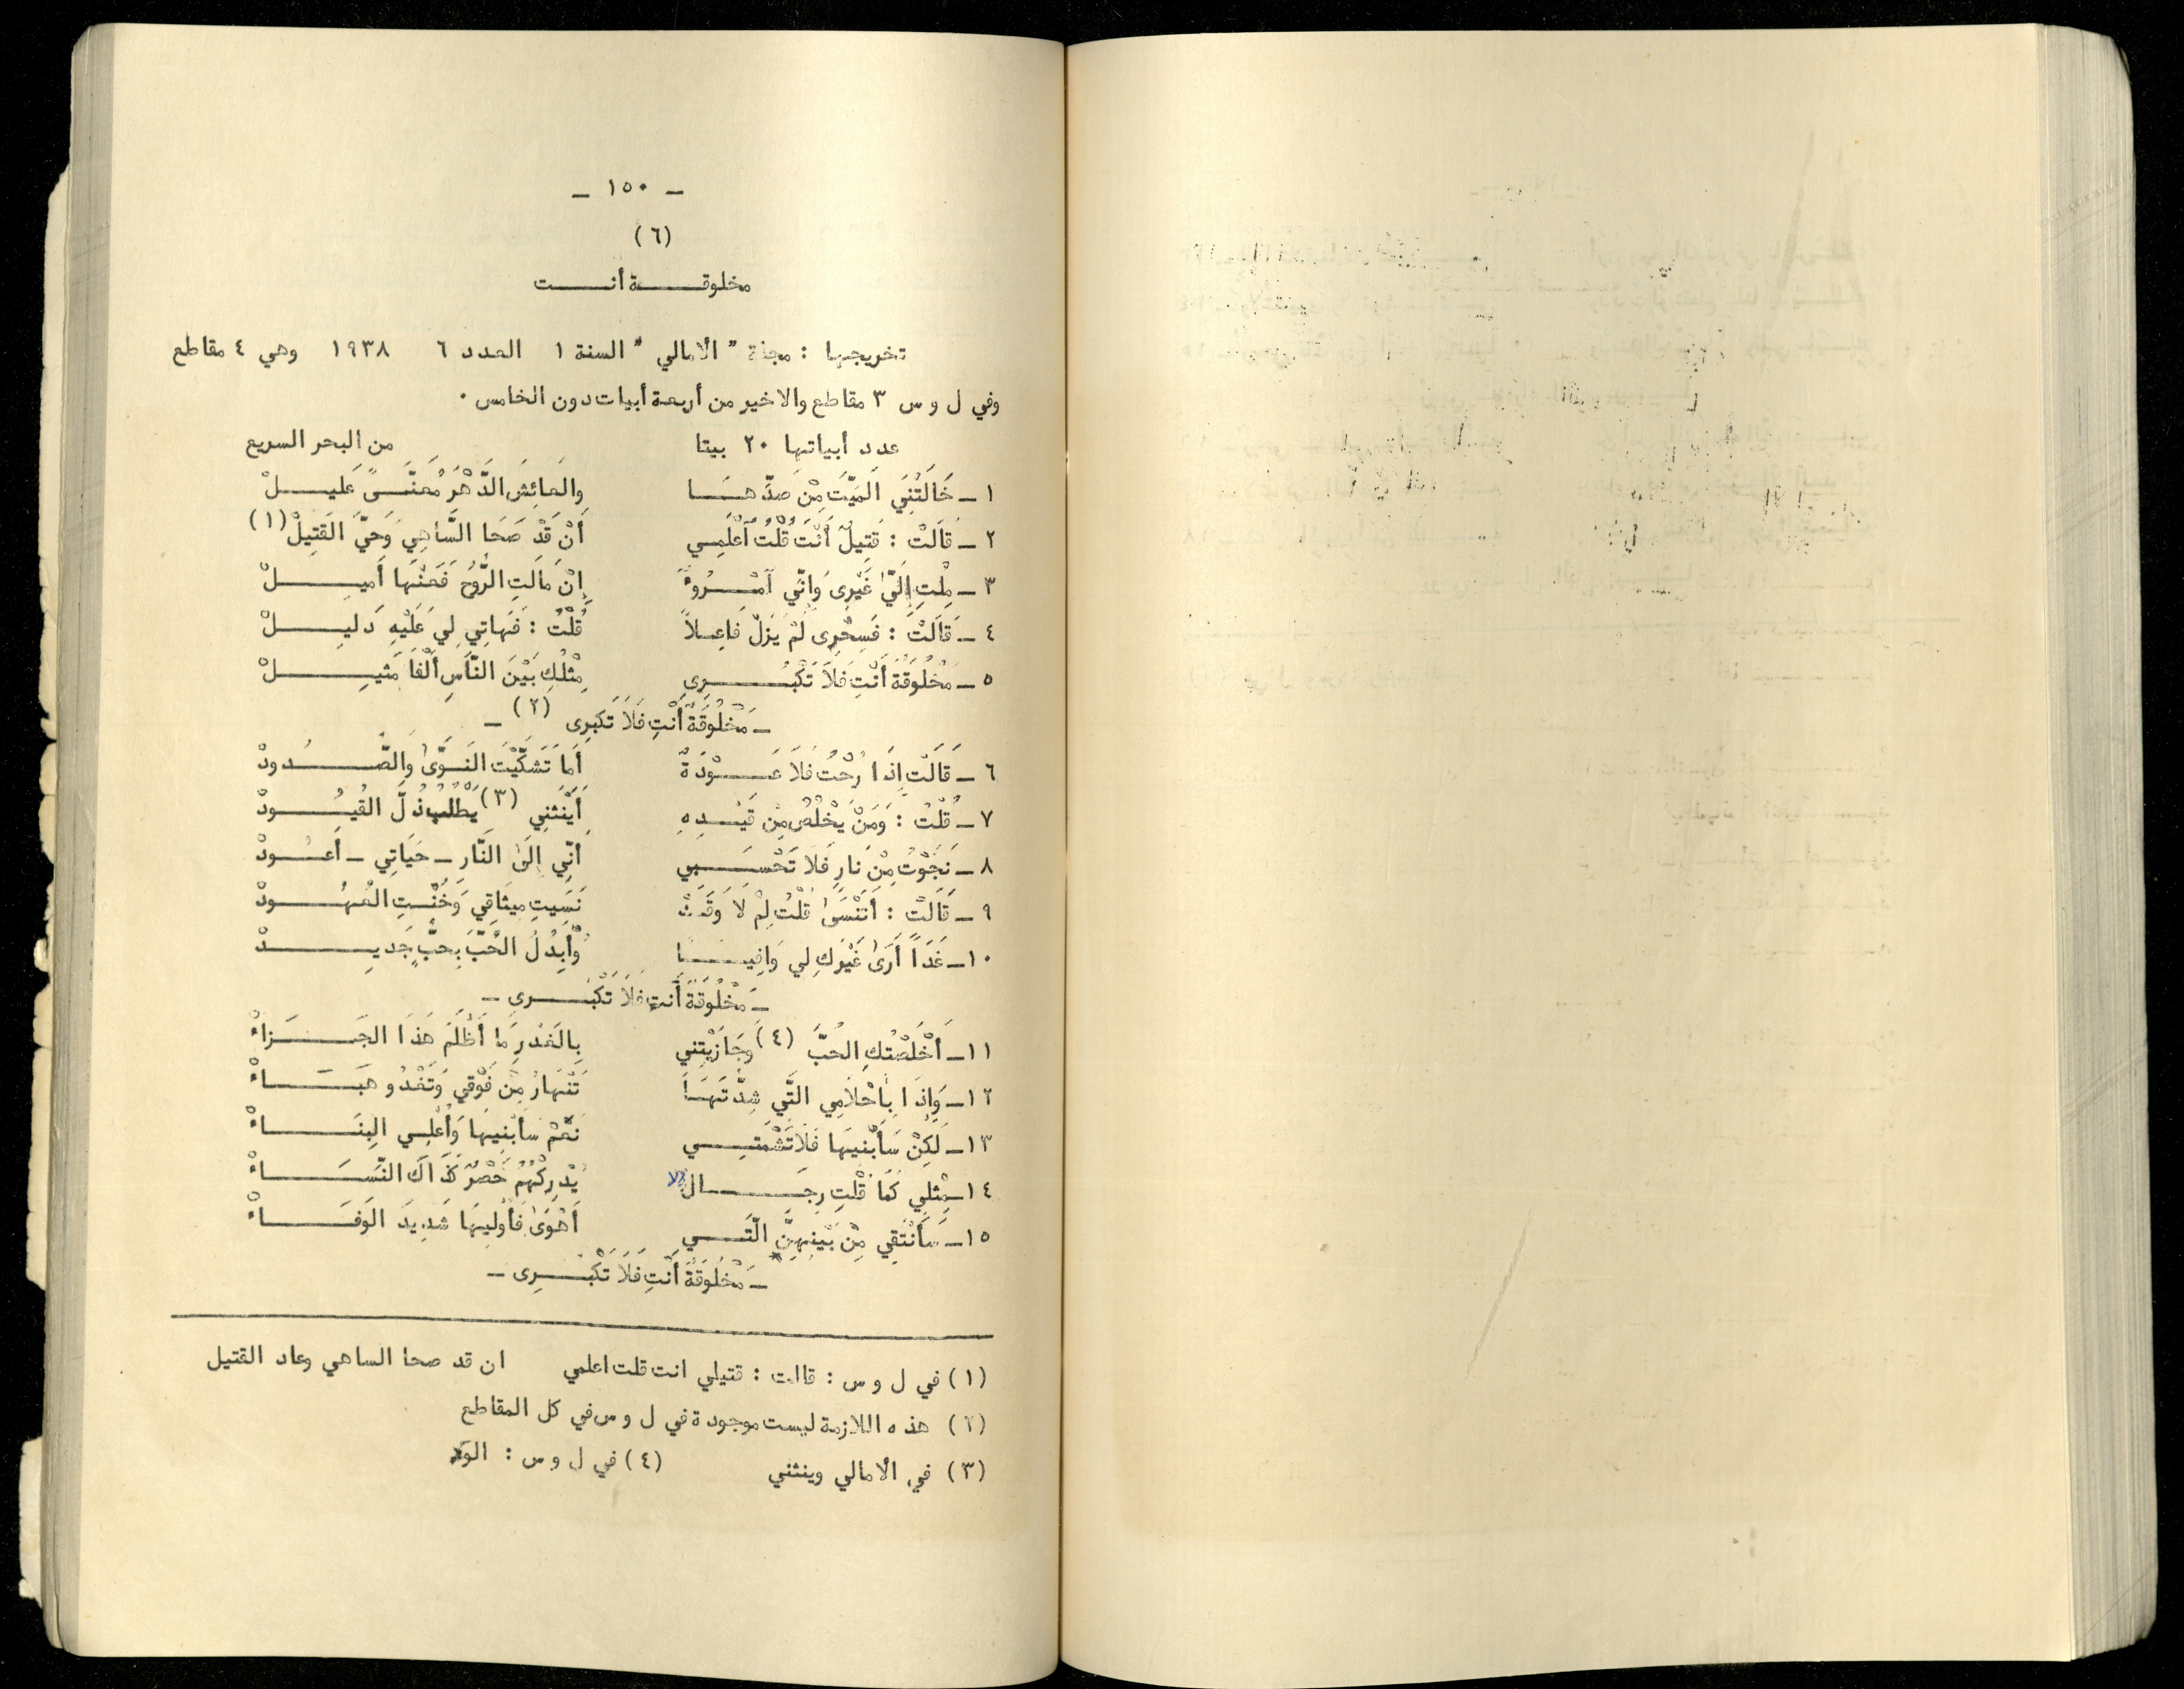 ـ ١٥٠ ـ
(٦)
مخلوقة أنت
تخريجها : مجلة " الأمالي " السنة ١ العدد ٦ ١٩٣٨ وهي ٤ مقاطع
وفي ل و س ٣ مقاطع والاخير من أربعة أبيات دون الخامس ٠
عدد أبياتها ٢٠ بيتا من البحر السريع
١ ـ خَالَتْنِيَ المَيِّتَ مِنْ صَدِّهَا وِالعائِشَ الدَّهْرَ مُعَنَّىً عَلِيلْ
٢ ـ قَالَتْ : قَتِيلٌ أَنْتَ قُلْتُ أعْلَمِي أَنْ قَدْ صَحَا السَّاهِي وَحَيَّ القَتِيلْ (١)
٣ ـ مِلْتِ إِلَىَّ غَيْرِى وَإنِّي آمْرُوءٌ إِنْ مَالَتِ الرُّوُحَ فَعَنْهَا أَمِيلْ
٤ ـ قَالَتْ : فَسِحْرِى لَمْ يَزَلْ فَاعِلاً قُلْتُ : فَهَاتِي لِي عَلَيْهِ دَلِيلْ
٥ ـ مَخْلُوقَةٌ أَنْتِ فَلاَ تَكْبُرِي مِثْلُكِ بَيْنَ النَّاسِ أَلْفَا مَثِيلْ
ـ مَخْلُوقَةٌ أَنْتِ فَلاَ تَكبرِى (٢) ـ
٦ ـ قَالَتْ إِذَا رُحْتُ فَلاَ عَوْدَةٌ أَمَا تَشَكَّيْتَ النَوَّىٰ وَالصَّدُودْ
٧ ـ قُلْتُ : وَمَنْ يَخْلُصْ مِنْ قَيْدِهِ أَيَنْثَنِي (٣) يَطْلُبُ ذُلَّ القُيُودْ
٨ ـ نَجَوْتُ مِنْ نارِ فَلاَ تَحْسَبِي أَنِّي إِلَىٰ النَّارِ ـ حَيَاتِي ـ أَعُودْ
٩ ـ قَالَتْ : أَتَنْسَىٰ قُلْتُ لِمْ لاَ وَقَدْ نَسِيتِ مِيثَاقِي وَخُنْتِ العُهُودْ
١٠ ـ غَدَاً أَرَىٰ غَيْرَكِ لِي وَافِيا وُأبدُلُ الحُبَّ بِحبٍّ جَدِيدْ
ـ مَخْلُوقَةٌ أَنتِ فَلاَ تَكْبُرِي ـ
١١ ـ أَخْلَصْتُكِ الحُبَّ (٤) وجَازَيْتِني بِالغَدْرِ مَا أَظْلَمَ هَذَا الجَزاءْ
١٢ ـ وَإِذَا بِأَحْلاَمِي التَّي شِدْتَهَا تَنْهَارُ مِنْ فَوْقِي وَتَغْدُو هَبَاءْ
١٣ ـ لَكِنْ سَأَبْنِيهَا فَلاَ تَشْمَتِي نَعَمْ سأبْنِيهَا وَأُعْلِي البِنَاءْ
١٤ ـ مِثْلِي كَمَا قُلْتِ رِجَالٌ لا يُدْرِكْهُمُ حَصْرٌ كَذَاكَ النِّسَاءْ
١٥ ـ سَأَنْتَقِي مِنْ بَيْنِهِنِّ الّتَي أَهْوَىٰ فَأُولِيهَا شَدِيدَ الوَفَاءْ
ـ مَخْلُوقَةٌ أَنْتِ فَلاَ تَكْبُرِى ـ
(١) في ل و س : قالت : قتيلي انت قلت اعلمي ان قد صحا الساهي وعاد القتيل
(٢) هذه اللازمة ليست موجودة في ل و س في كل المقاطع
(٣) في الأمالي وينثني (٤) في ل و س :